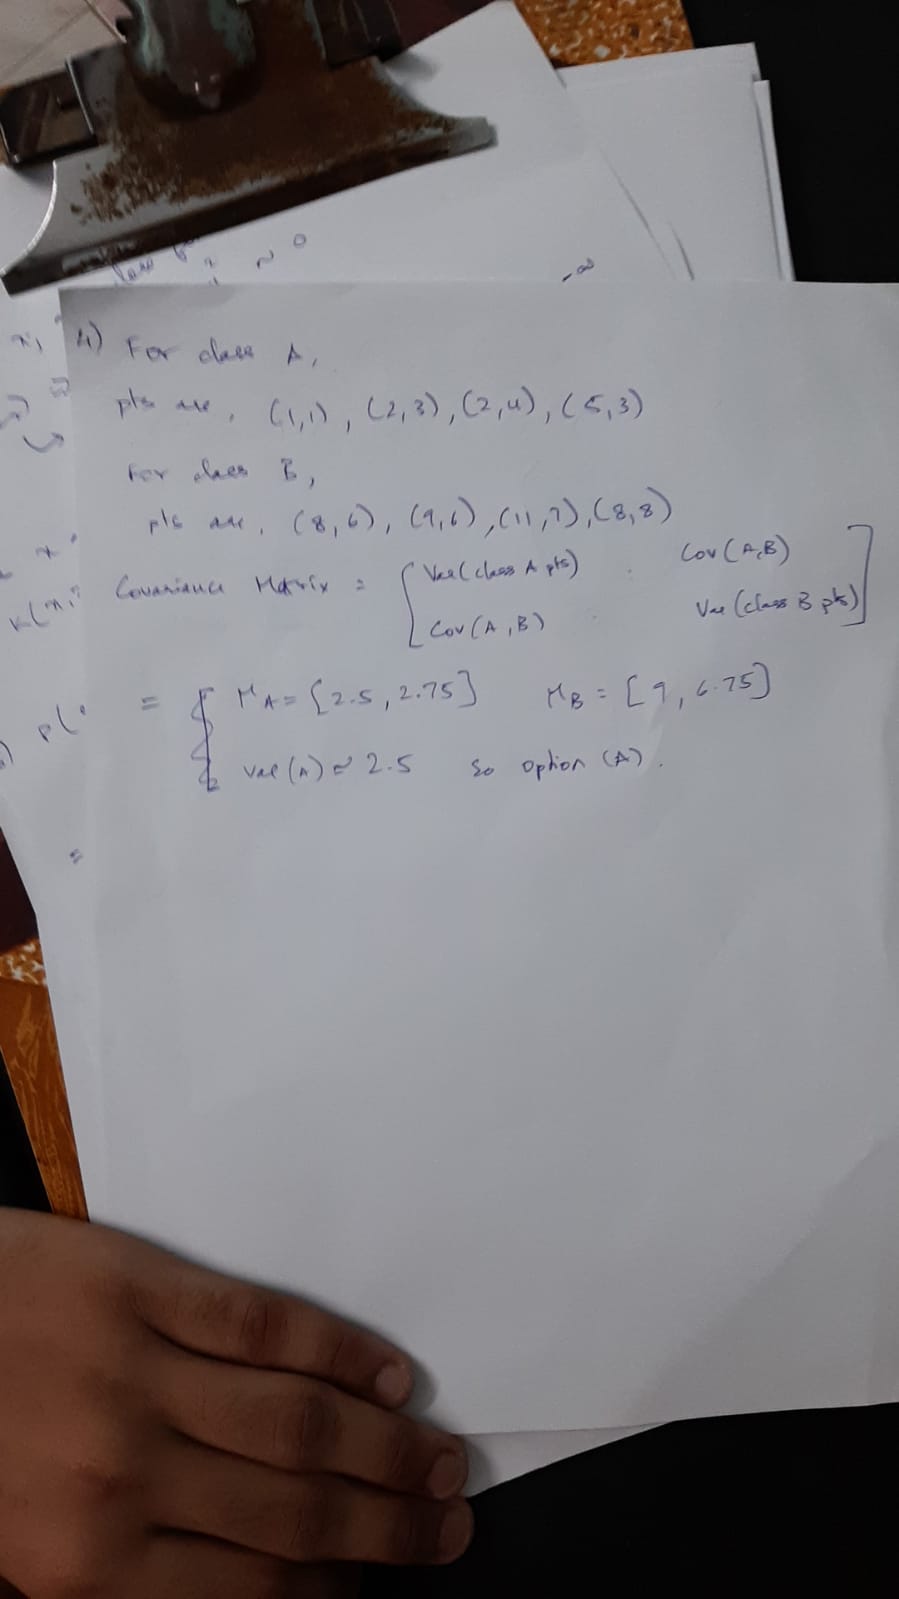 4) For class A,
pts are, (1,1), (2,3), (2,4), (5,3)
For class B,
pts are, (8,6), (9,6), (11,7), (8,8)
Covariance Matrix = [ Var(class A pts) Cov(A,B)
Cov(A,B) Var(class B pts) ]
= μA = [2.5, 2.75] μB = [9, 6.75]
var(A) ≈ 2.5 so option (A).
=